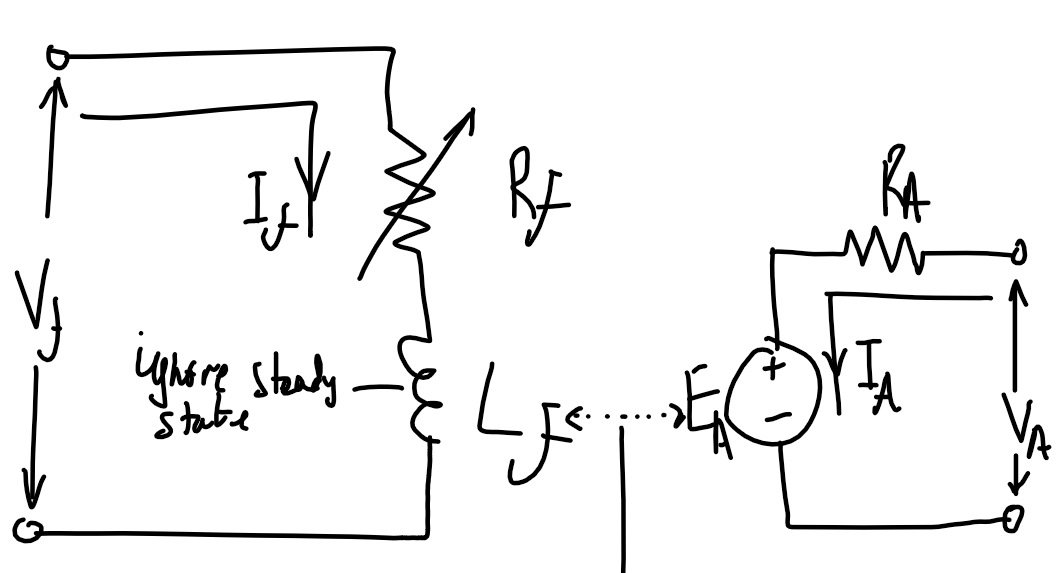 I_f
R_f
V_f
ignore steady
state
L_f
R_A
E_A
+
-
I_A
V_A